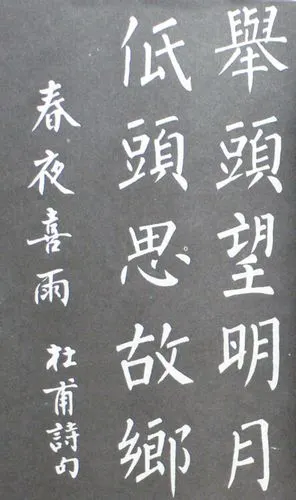 舉頭望明月
低頭思故鄉
春夜喜雨
杜甫詩句